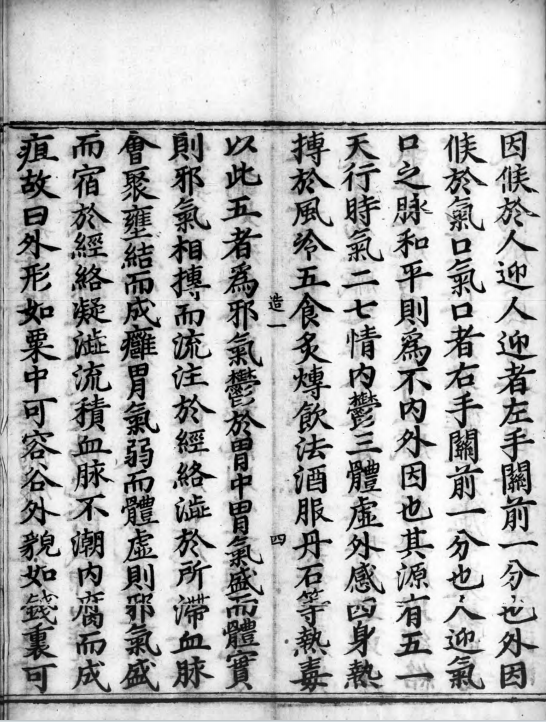 因候於人迎人迎者左手關前一分也外因
候於氣口氣口者右手關前一分也人迎氣
口之脉和平則爲不内外因也其源有五一
天行時氣二七情内鬱三體虛外感四身熱
摶於風冷五食炙煿飲法酒服丹石等熱毒
造一
四
以此五者爲邪氣鬱於胃中胃氣盛而體實
則邪氣相摶而流注於經絡澁於所滯血脉
會聚壅結而成癰胃氣弱而體虛則邪氣盛
而宿於經絡凝澁流積血脉不潮内腐而成
疽故曰外形如粟中可容谷外貌如錢裏可